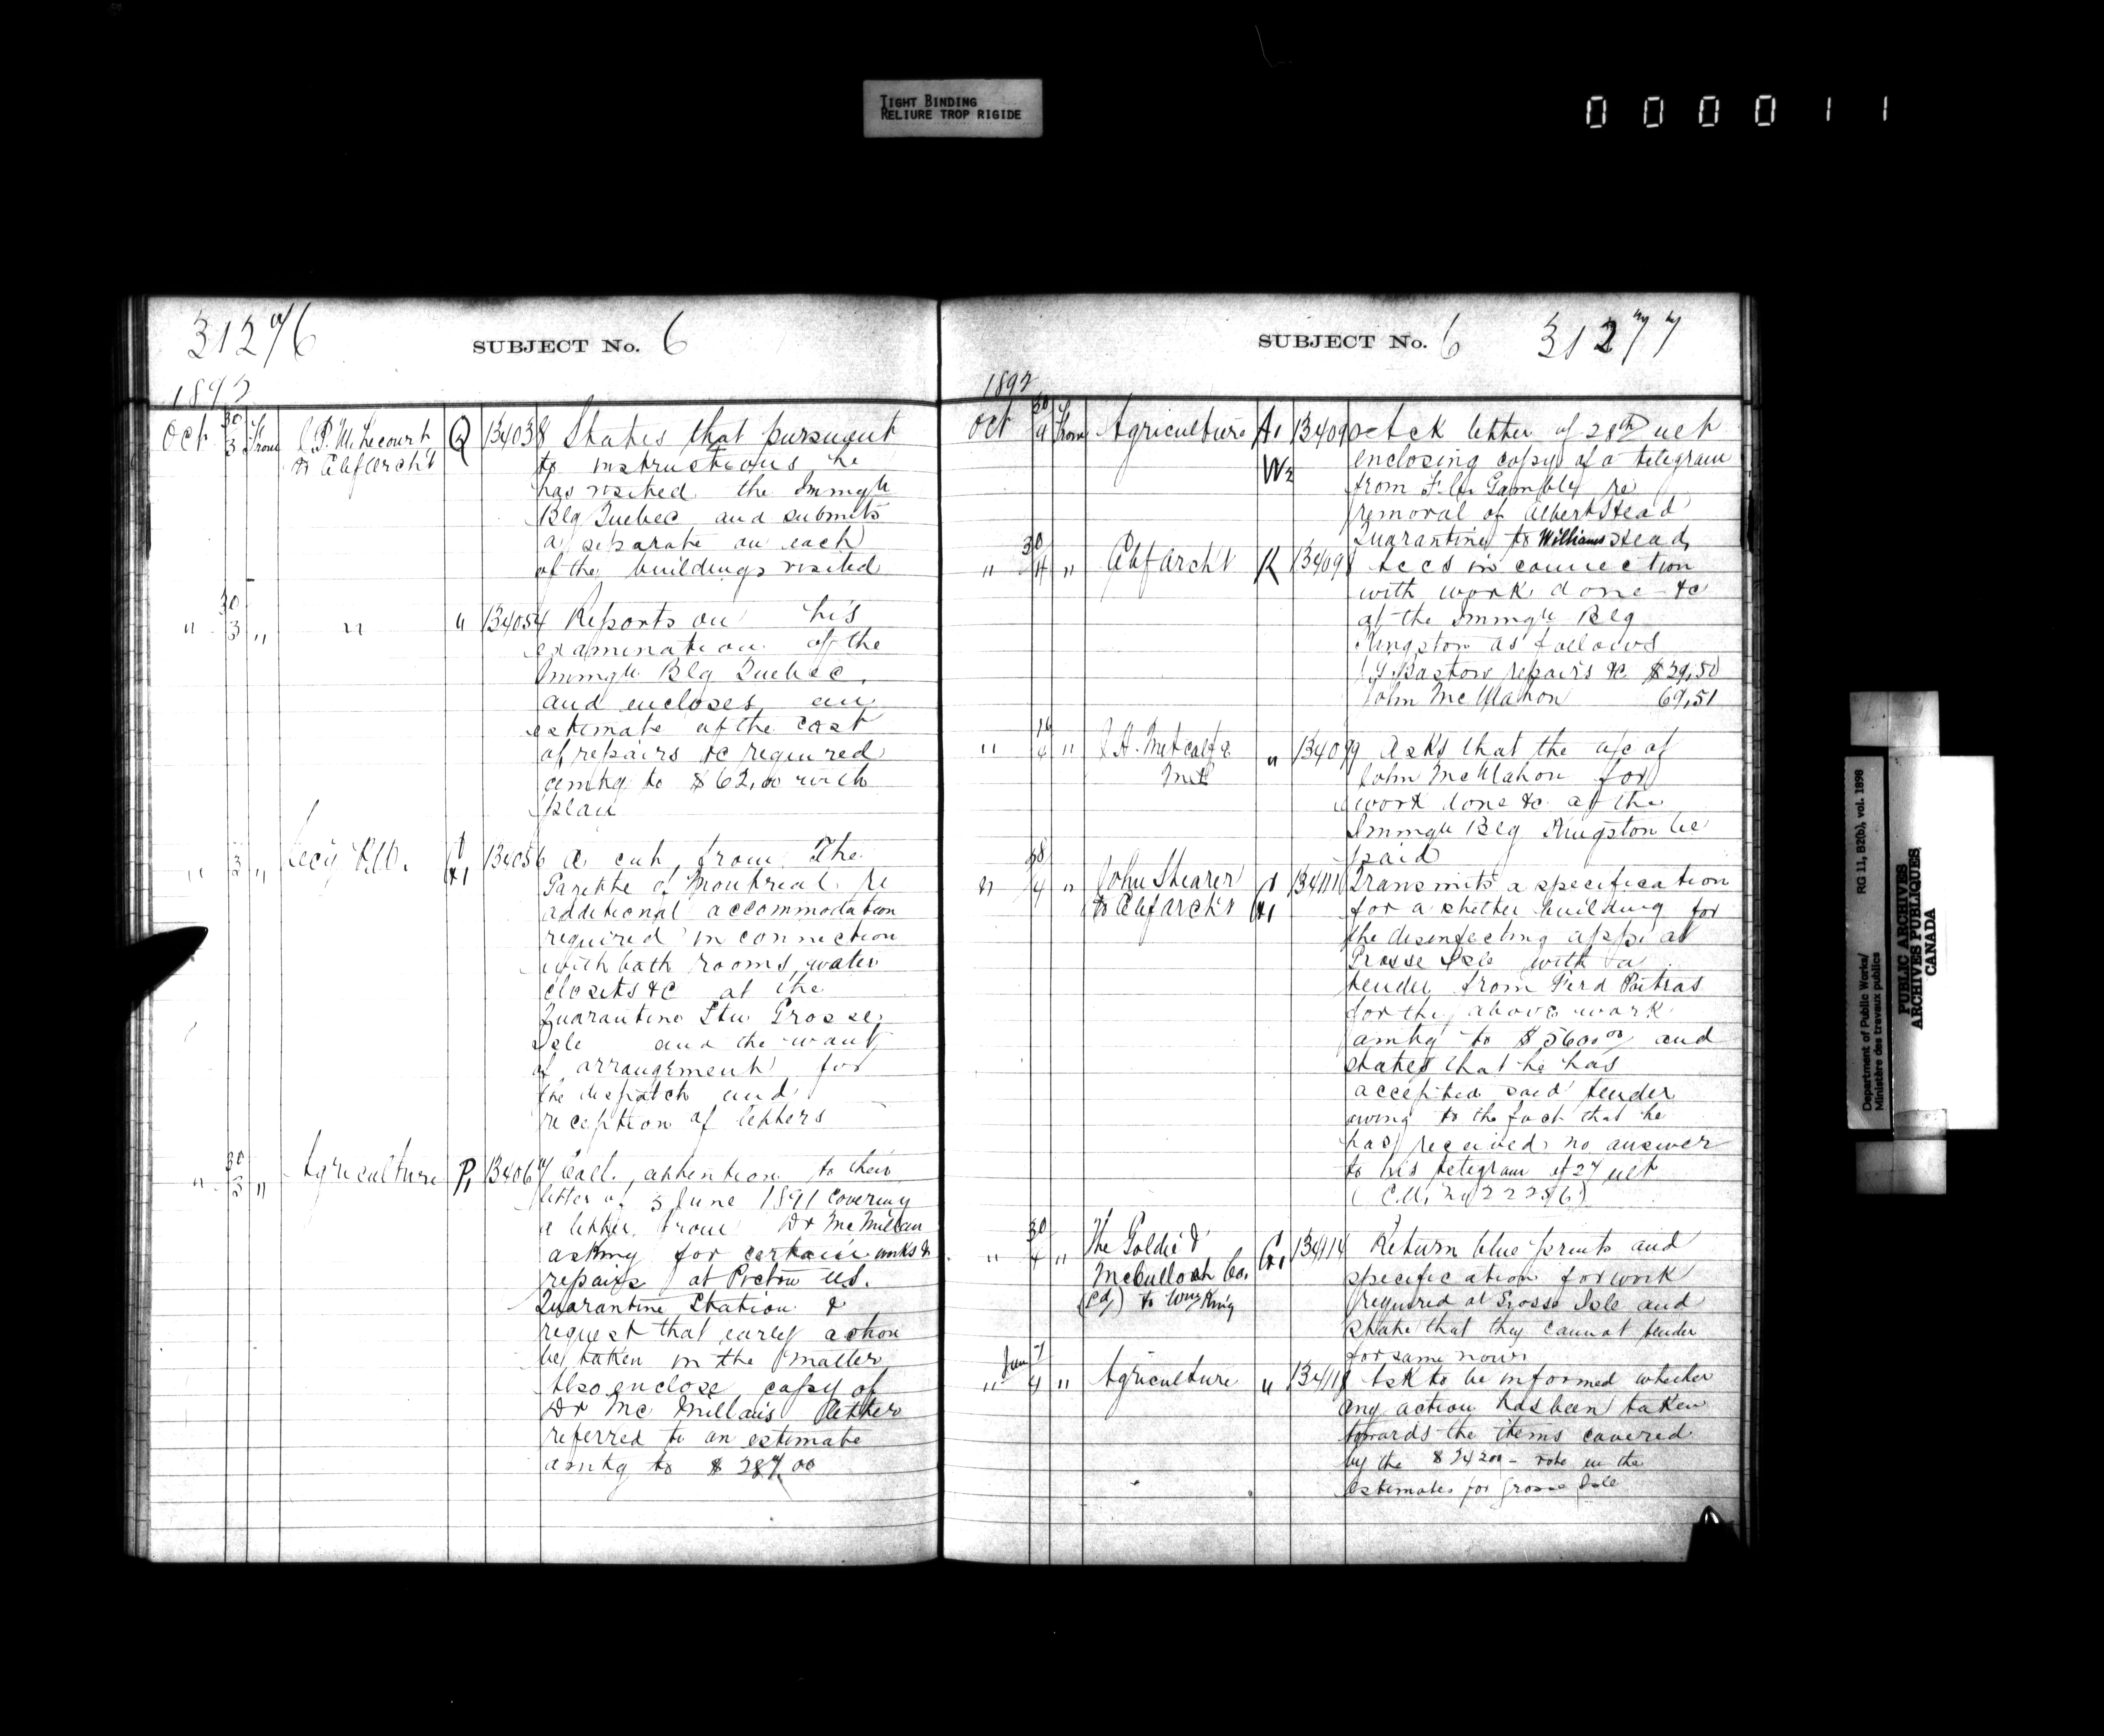 TIGHT BINDING
RELIURE TROP RIGIDE
000011
31276
SUBJECT No. 6
189
Oct 30 3 From
to Chf Archt
Q
134038
States that pursuant
to instructions he
has visited the Immgn
Blg Quebec and submits
a separate on each
of the buildings visited
" 30 3 " " " 134054
Reports on his
examination of the
Immgn Blg Quebec
and encloses an
estimate of the cost
of repairs &c required
amtg to $62,00 with
plan
" 3 " Secy P.W. 134056
A cut from The
Gazette of Montreal re
additional accommodation
required in connection
with bath rooms, water
closets &c at the
Quarantine Stn Grosse
Isle and the want
of arrangement for
the despatch and
reception of letters
" 30 3 " Agriculture P1 134067
Call attention to their
letter of 3 June 1891 covering
a letter from Dr McMillan
asking for certain works &
repairs at Pictou N.S.
Quarantine Station &
request that early action
be taken in the matter
Also enclose copy of
Dr McMillan's letter
referred to an estimate
amtg to $287.00
SUBJECT No. 6
31277
1892
Oct 30 4 From Agriculture A1 W2 134090
Ack letter of 28th ult
enclosing copy of a telegram
from F.C. Gamble re
removal of Albert Head
Quarantine to Williams Head
" 30 4 " Chf Archt K 134091
Accs in connection
with work done &c
at the Immgn Blg
Kingston as follows
Bastow repairs &c $39,50
John McMahon 69,51
" 4 " J.H. Metcalfe " 134099
Asks that the a/c of
John McMahon for
work done &c at the
Immgn Blg Kingston be
paid
" 28 4 " John Shearer
to Chf Archt
134111
Transmits a specification
for a shelter building for
the disinfecting app: at
Grosse Isle with a
tender from Ferd Poitras
for the above work
amtg to $5600 00 and
states that he has
accepted said tender
owing to the fact that he
has received no answer
to his telegram of 27 ult
" 30 4 " The Goldie &
McCulloch Co.
(Ld) to Wm King
134114
Return blue prints and
specification for work
required at Grosse Isle and
state that they cannot tender
for same now.
" Jun 7 4 " Agriculture " 134118
Ask to be informed whether
any action has been taken
towards the items covered
by the $24200 - vote in the
estimates for Grosse Isle
Department of Public Works/
Ministère des travaux publics
RG 11, B2(b), vol. 1898
PUBLIC ARCHIVES
ARCHIVES PUBLIQUES
CANADA